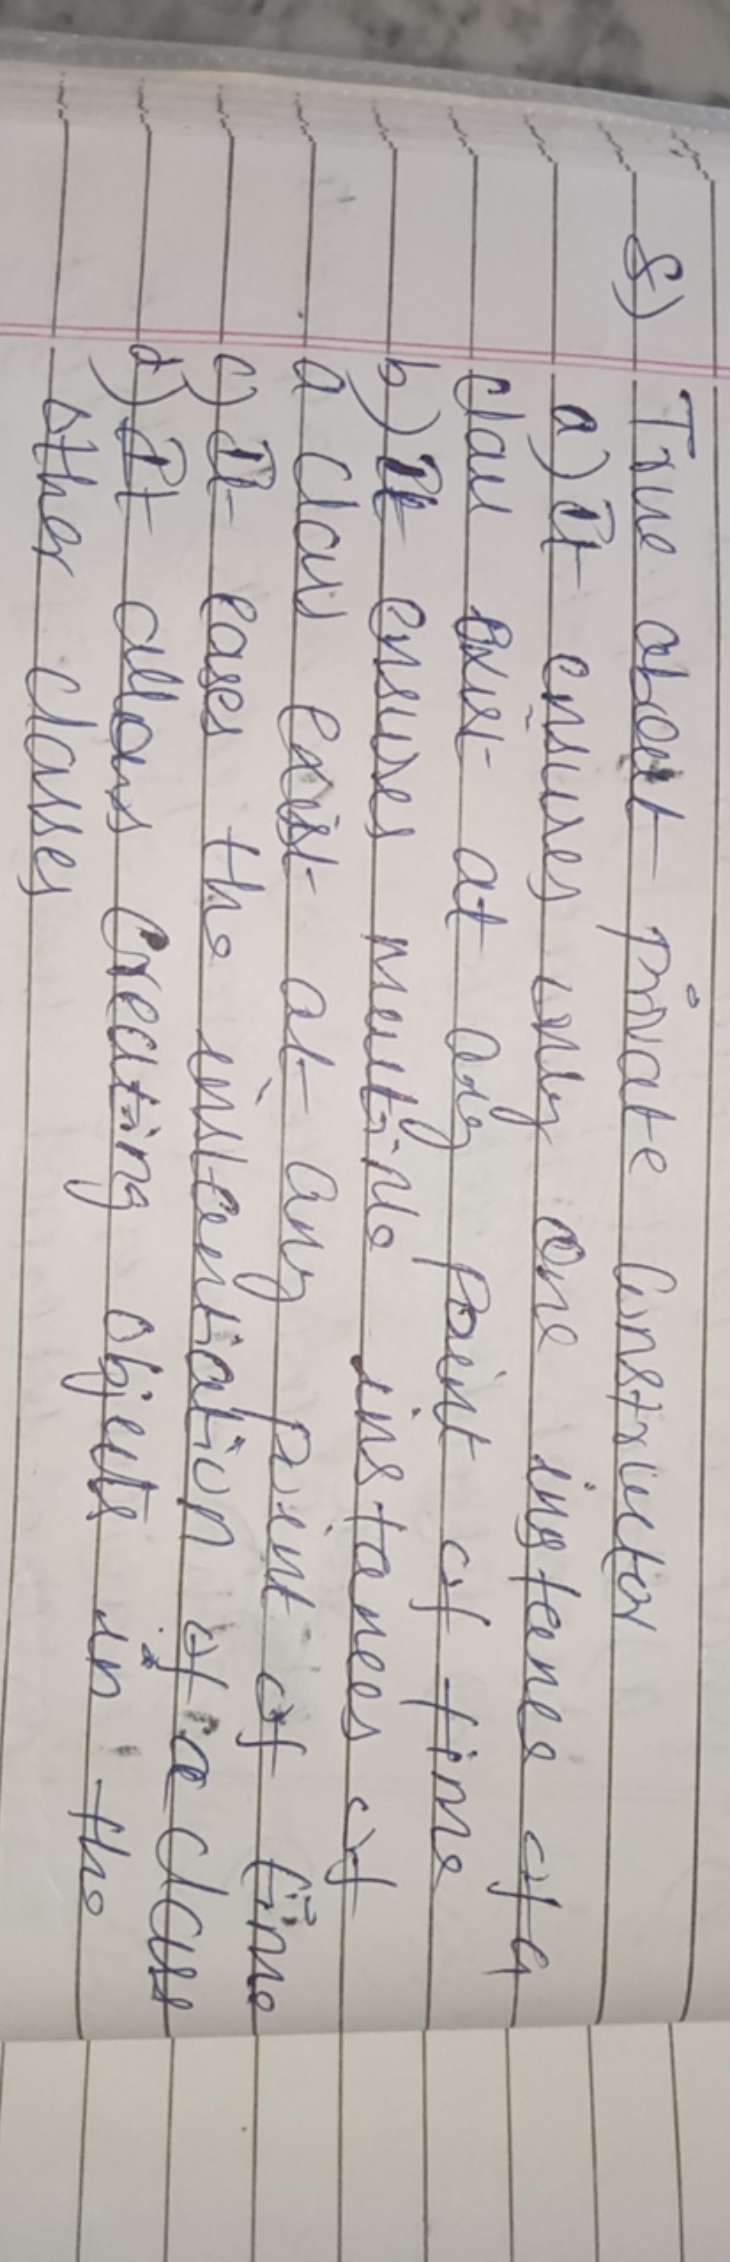 8) True about private Constructor
a) It ensures only one instance of a
class exist at any point of time
b) It ensures multiple instances of
a class exist at any point of time
c) It eases the instantiation of a class
d) It allows creating objects in the
other classes